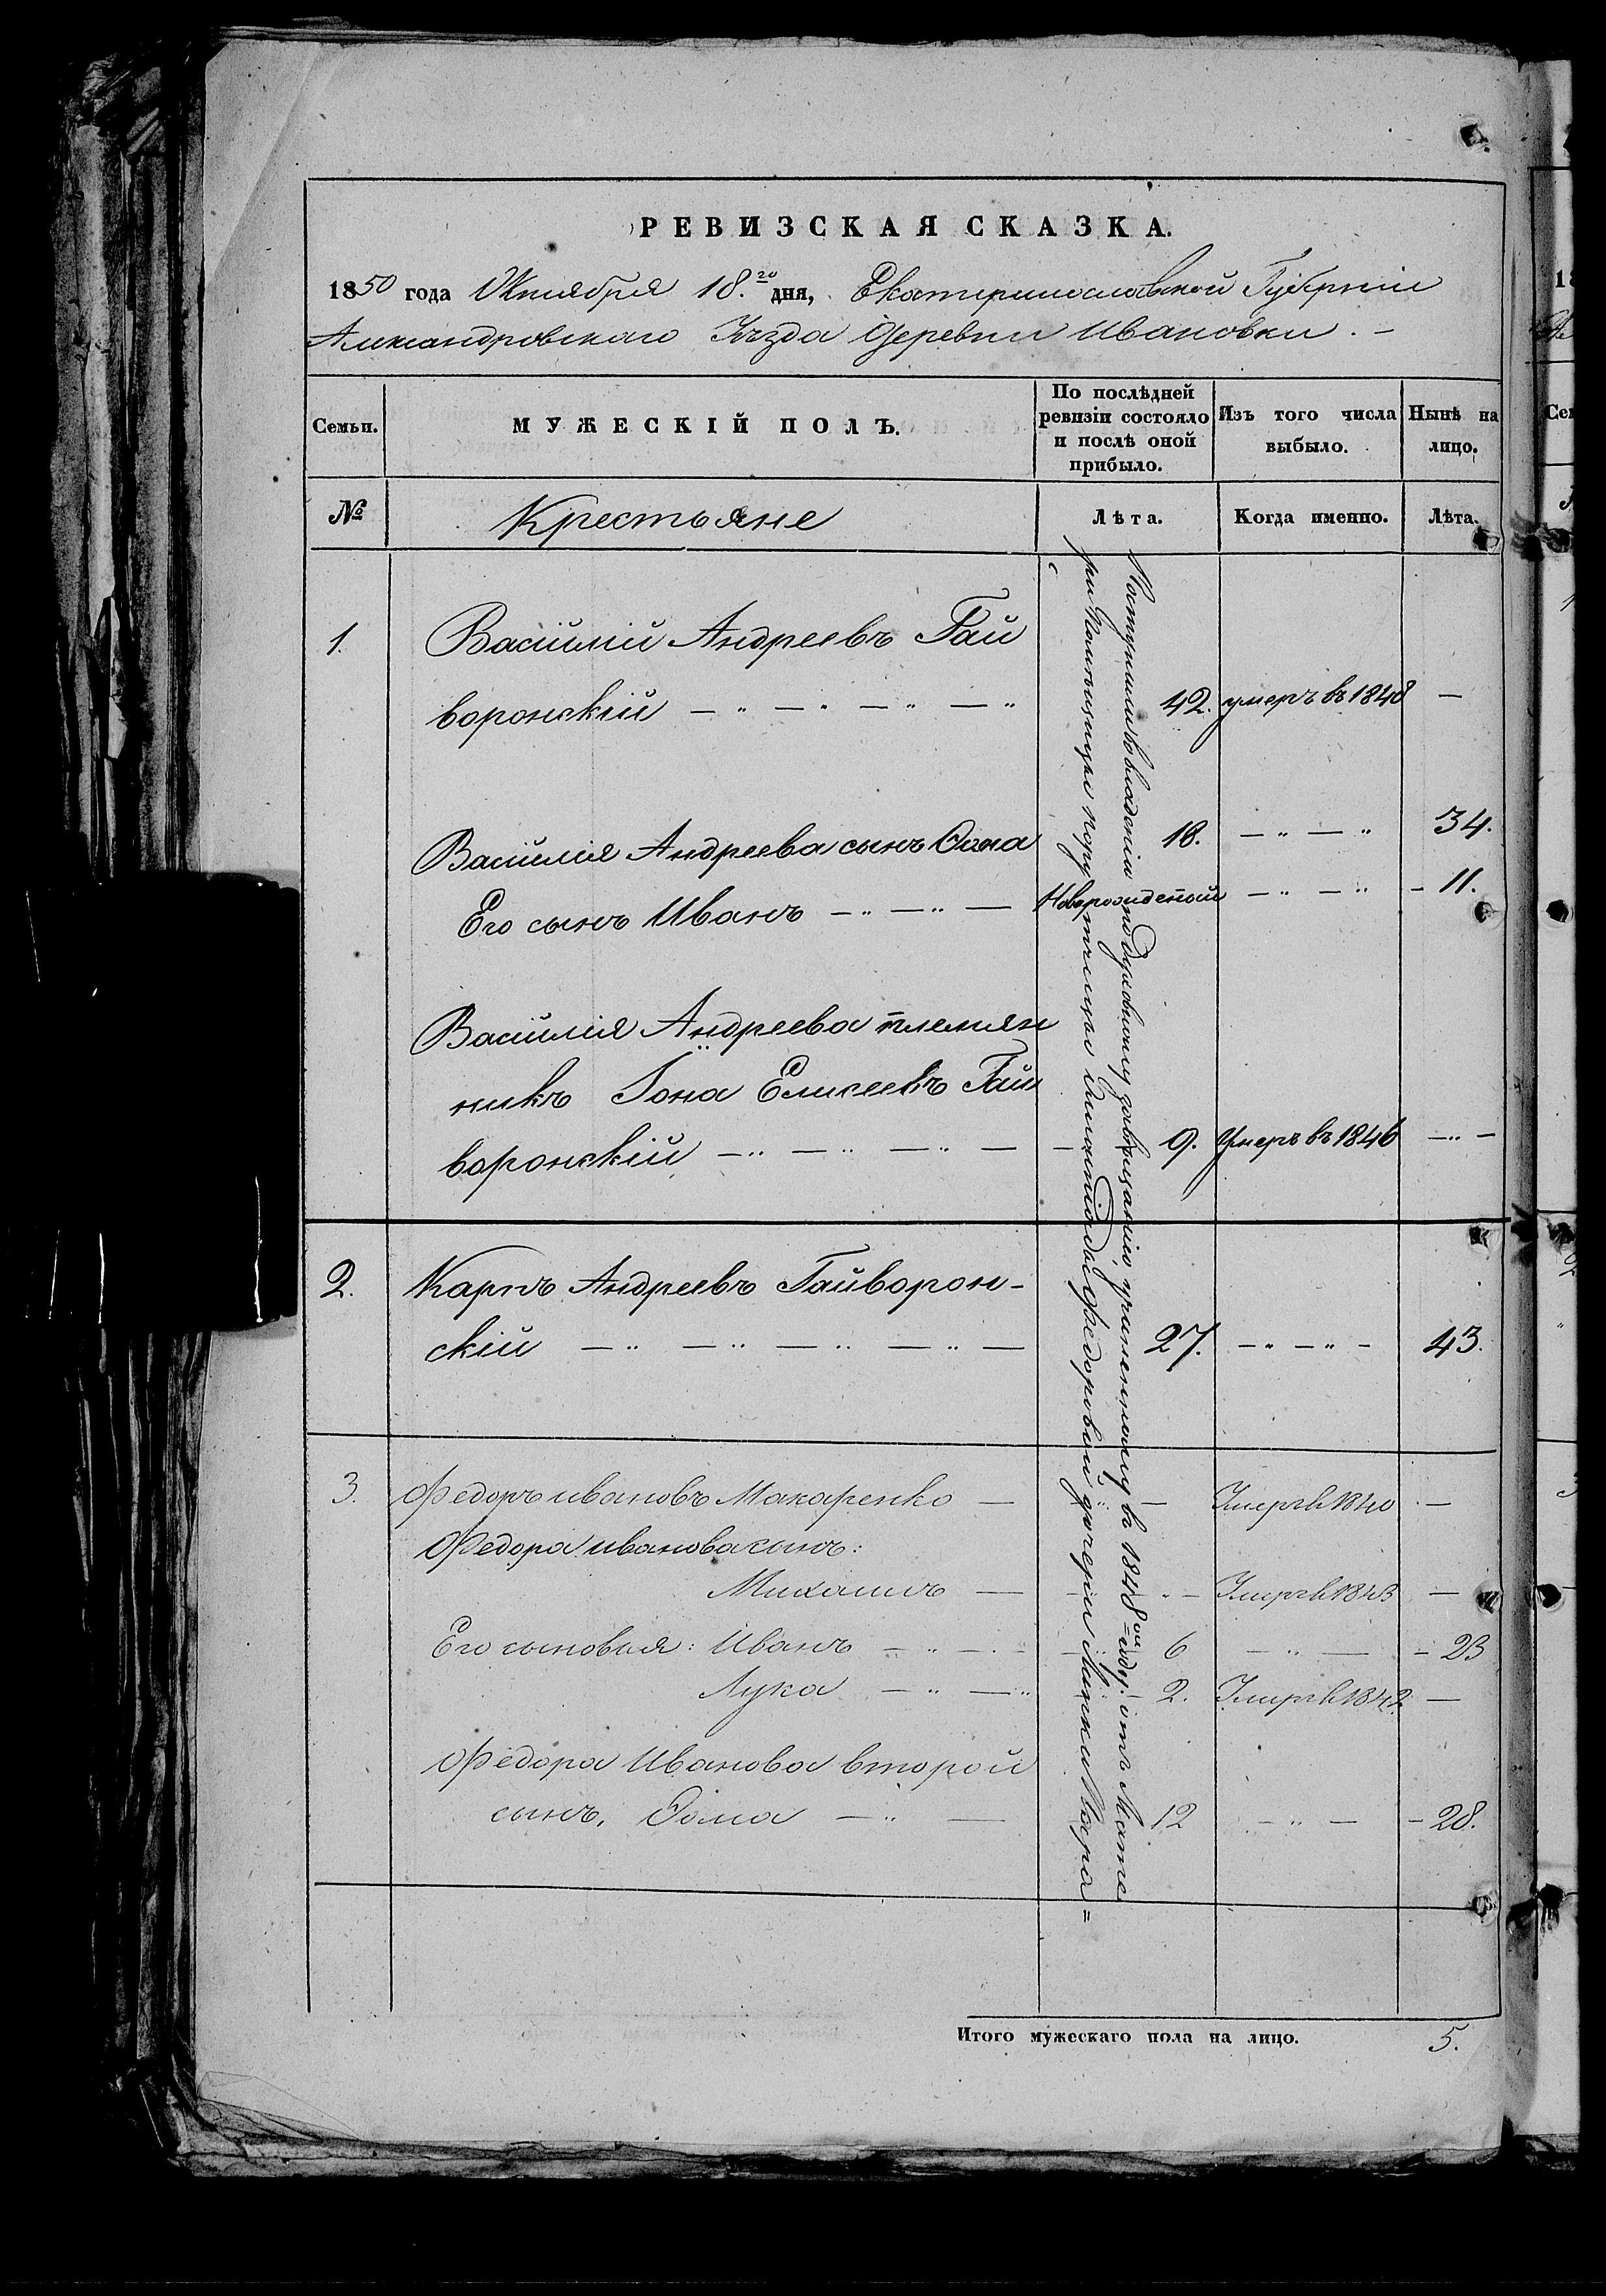 РЕВИЗСКАЯ СКАЗКА.
1850 года Октября 18.го дня, Екатеринославской Губернiи
Александровскаго Уѣзда Деревни Ивановки. -
Семьи. МУЖЕСКІЙ ПОЛЪ. По послѣдней ревизіи состояло и послѣ оной прибыло. Изъ того числа выбыло. Нынѣ на лицо.
№ Крестьяне Лѣта. Когда именно. Лѣта.
1. Василий Андреевъ Гай
воронскій 42. умеръ въ 1848 —
Василия Андреева сынъ Фома 18. — " — " 34.
Его сынъ Иванъ — " — " — Новорожденый — " — " - 11.
Василия Андреева племян
никъ Iона Елисеевъ Гай
воронскій 9. Умеръ въ 1846 — " —
2. Карпъ Андреевъ Гайворон-
скій 27. — " — " - 43.
3. Федоръ Ивановъ Макаренко — — Умеръ въ 1840 —
Федора Иванова сынъ:
Михаилъ — " — Умеръ въ 1843 —
Его сыновья: Иванъ — " — 6 — " — - 23
Лука — " — " 2. Умеръ въ 1842 —
Федора Иванова второй
сынъ, Фома — " — 12 — " — - 28.
Поступили во владенiи по духовному завещанiю, учиненному въ 1848ом году. отъ Мате
ри Помѣщицы порутчицы Федоровой дочери
Итого мужескаго пола на лицо. 5.